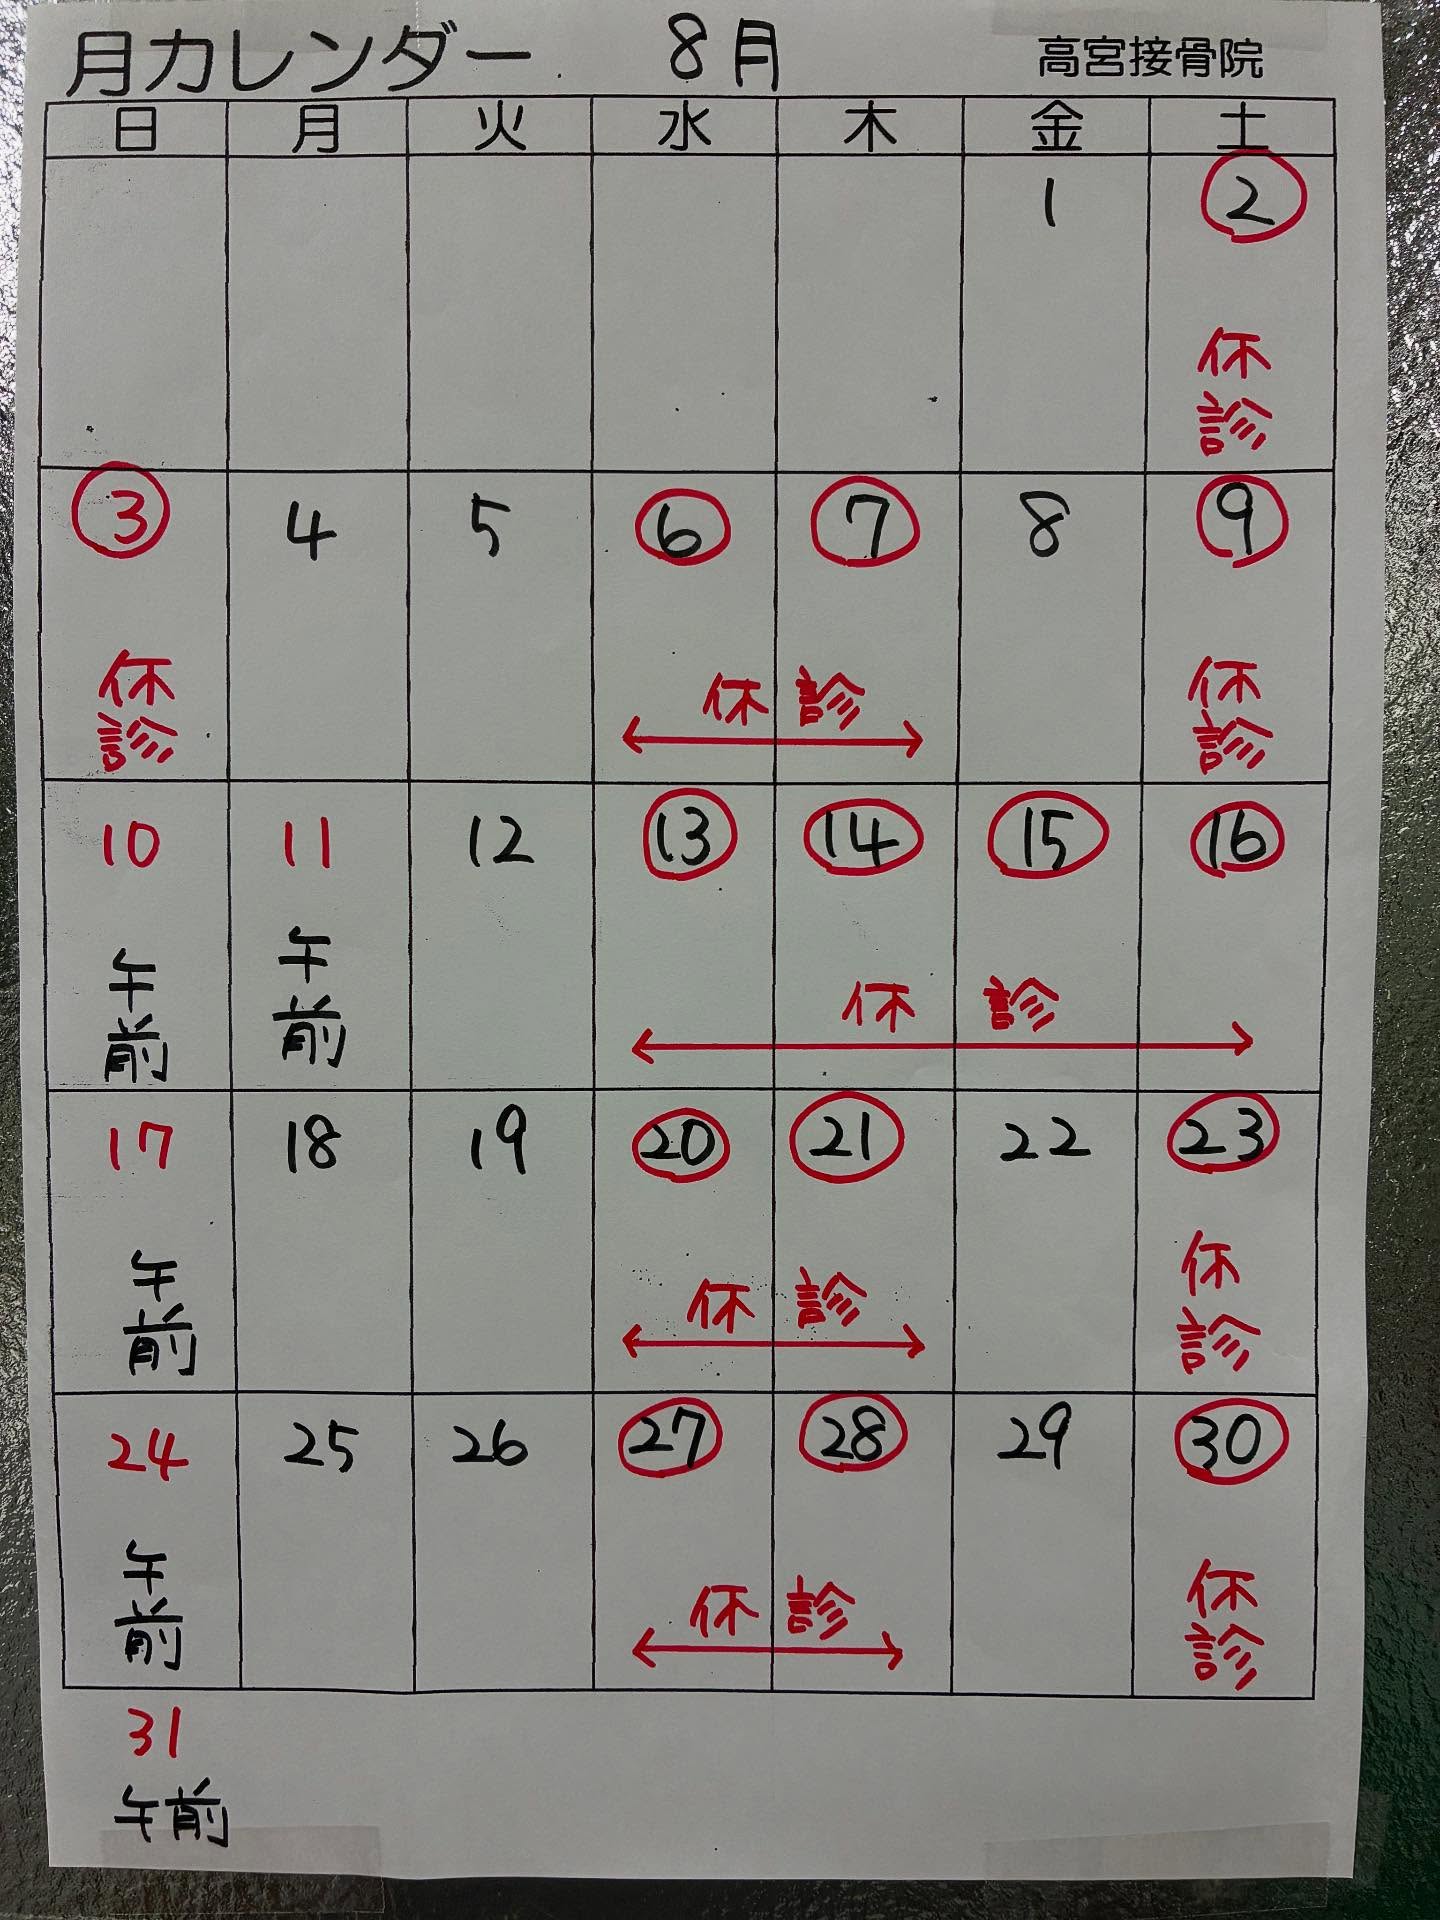 月カレンダー 8月 高宮接骨院
日 月 火 水 木 金 土
1 2
休診
3 4 5 6 7 8 9
休診 休診 休診
10 11 12 13 14 15 16
午前 午前 休診
17 18 19 20 21 22 23
午前 休診 休診
24 25 26 27 28 29 30
午前 休診 休診
31
午前